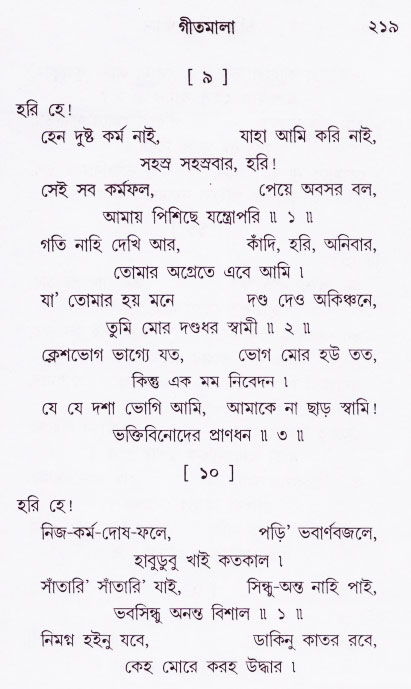 গীতমালা ২১৯
[ ৯ ]
হরি হে!
হেন দুষ্ট কর্ম নাই, যাহা আমি করি নাই,
সহস্র সহস্রবার, হরি!
সেই সব কর্মফল, পেয়ে অবসর বল,
আমায় পিশিছে যন্ত্রোপরি ॥ ১ ॥
গতি নাহি দেখি আর, কাঁদি, হরি, অনিবার,
তোমার অগ্রেতে এবে আমি ।
যা’ তোমার হয় মনে দণ্ড দেও অকিঞ্চনে,
তুমি মোর দণ্ডধর স্বামী ॥ ২ ॥
ক্লেশভোগ ভাগ্যে যত, ভোগ মোর হউ তত,
কিন্তু এক মম নিবেদন ।
যে যে দশা ভোগি আমি, আমাকে না ছাড় স্বামি!
ভক্তিবিনোদের প্রাণধন ॥ ৩ ॥
[ ১০ ]
হরি হে!
নিজ-কর্ম-দোষ-ফলে, পড়ি’ ভবার্ণবজলে,
হাবুডুবু খাই কতকাল ।
সাঁতারি’ সাঁতারি’ যাই, সিন্ধু-অন্ত নাহি পাই,
ভবসিন্ধু অনন্ত বিশাল ॥ ১ ॥
নিমগ্ন হইনু যবে, ডাকিনু কাতর রবে,
কেহ মোরে করহ উদ্ধার ।